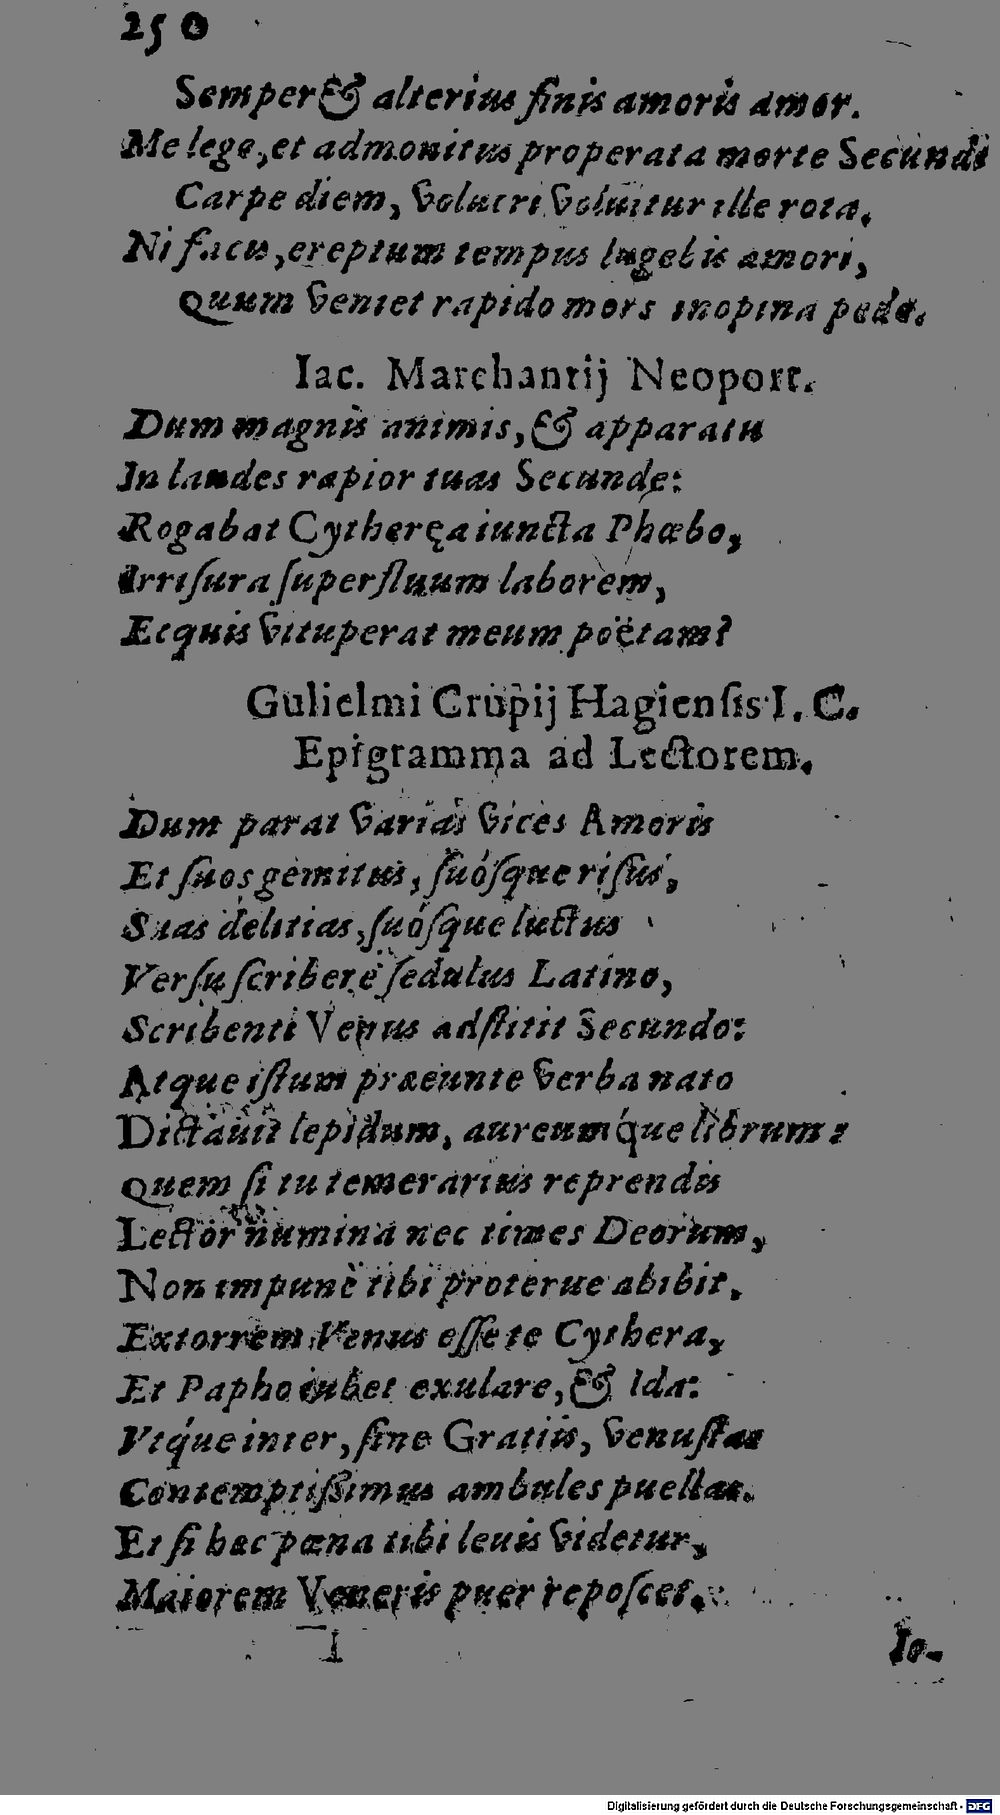 250
Semper & alterius finis amoris amor.
Me lege, et admonitus properata morte Secundi
Carpe diem, volucri voluitur ille rota.
Ni facis, ereptum tempus lugebis amori,
Quum veniet rapido mors inopina pede.
Iac. Marchantij Neoport.
Dum magnis animis, & apparatu
In laudes rapior tuas Secunde:
Rogabat Cytheręa iuncta Phœbo,
Irrisura superfluum laborem,
Ecquis vituperat meum poëtam?
Gulielmi Crupij Hagiensis I. C.
Epigramma ad Lectorem.
Dum parat varias vices Amoris
Et suos gemitus, suósque risus,
Suas delitias, suósque luctus
Versu scribere sedulus Latino,
Scribenti Venus adstitit Secundo:
Atque istum præeunte verba nato
Dictauit lepidum, aureumq́ue librum:
Quem si tu temerarius reprendis
Lector numina nec times Deorum,
Non impunè tibi proterue abibit.
Extorrem Venus esse te Cythera,
Et Papho iubet exulare, & Ida:
Vtq́ue inter, sine Gratiis, venustas
Contemptissimus ambules puellas.
Et si hæc pœna tibi leuis videtur,
Maiorem Veneris puer reposcet.
I
Io-
Digitalisierung gefördert durch die Deutsche Forschungsgemeinschaft - DFG